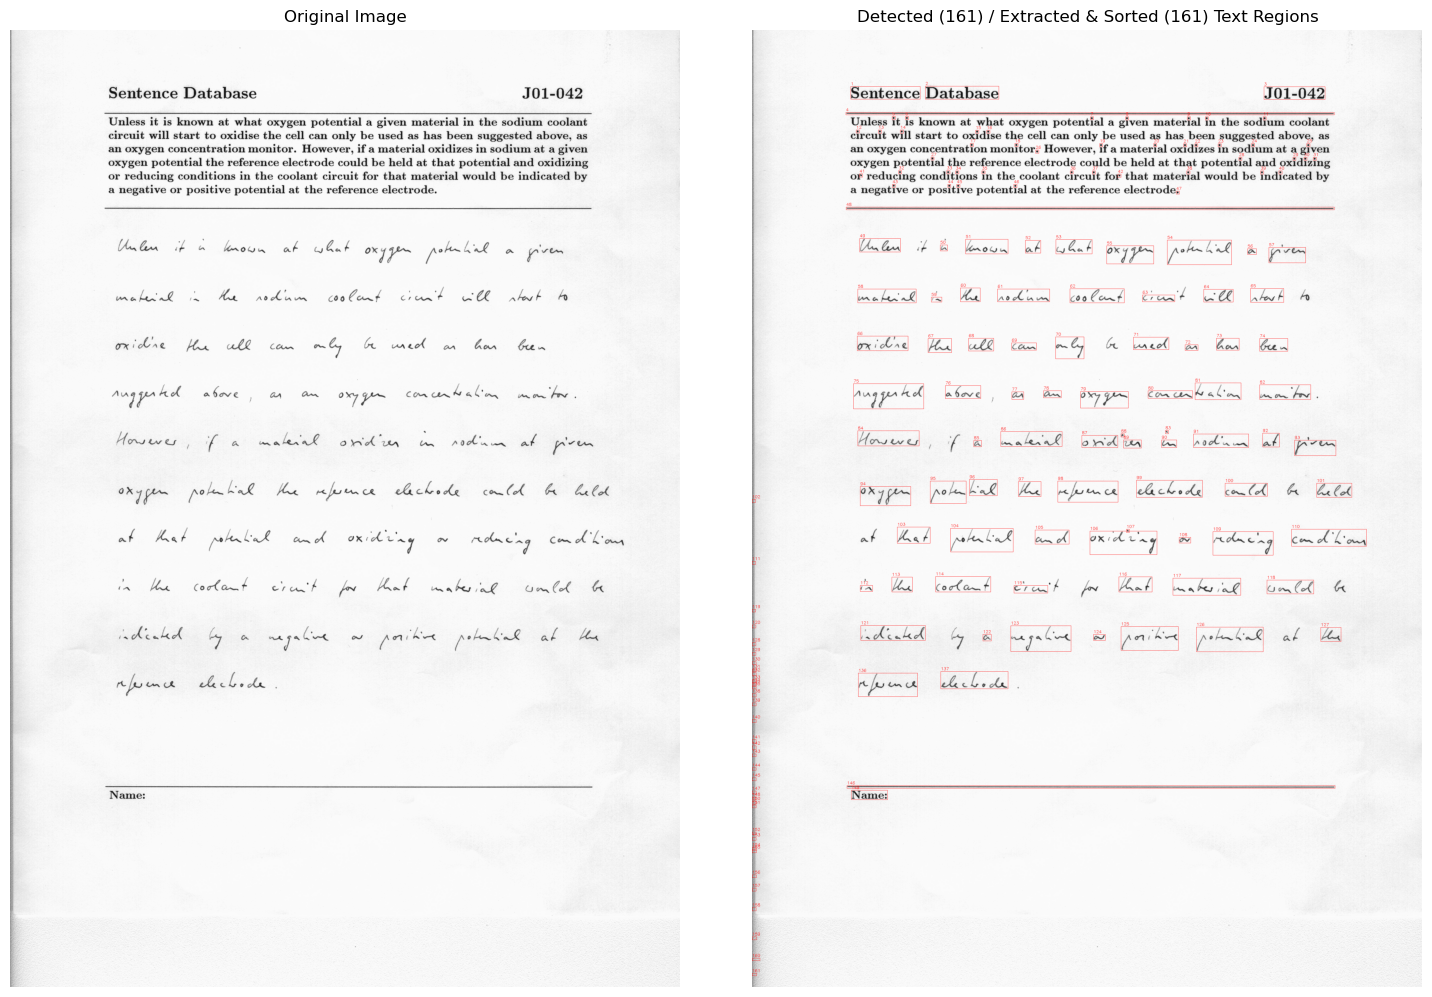 Original Image
Sentence Database J01-042
Unless it is known at what oxygen potential a given material in the sodium coolant
circuit will start to oxidise the cell can only be used as has been suggested above, as
an oxygen concentration monitor. However, if a material oxidizes in sodium at a given
oxygen potential the reference electrode could be held at that potential and oxidizing
or reducing conditions in the coolant circuit for that material would be indicated by
a negative or positive potential at the reference electrode.
Unless it is known at what oxygen potential a given
material in the sodium coolant circuit will start to
oxidise the cell can only be used as has been
suggested above, as an oxygen concentration monitor.
However, if a material oxidizes in sodium at given
oxygen potential the reference electrode could be held
at that potential and oxidizing or reducing conditions
in the coolant circuit for that material would be
indicated by a negative or positive potential at the
reference electrode.
Name:
Detected (161) / Extracted & Sorted (161) Text Regions
Sentence Database J01-042
Unless it is known at what oxygen potential a given material in the sodium coolant
circuit will start to oxidise the cell can only be used as has been suggested above, as
an oxygen concentration monitor. However, if a material oxidizes in sodium at a given
oxygen potential the reference electrode could be held at that potential and oxidizing
or reducing conditions in the coolant circuit for that material would be indicated by
a negative or positive potential at the reference electrode.
Unless it is known at what oxygen potential a given
material in the sodium coolant circuit will start to
oxidise the cell can only be used as has been
suggested above, as an oxygen concentration monitor.
However, if a material oxidizes in sodium at given
oxygen potential the reference electrode could be held
at that potential and oxidizing or reducing conditions
in the coolant circuit for that material would be
indicated by a negative or positive potential at the
reference electrode.
Name: